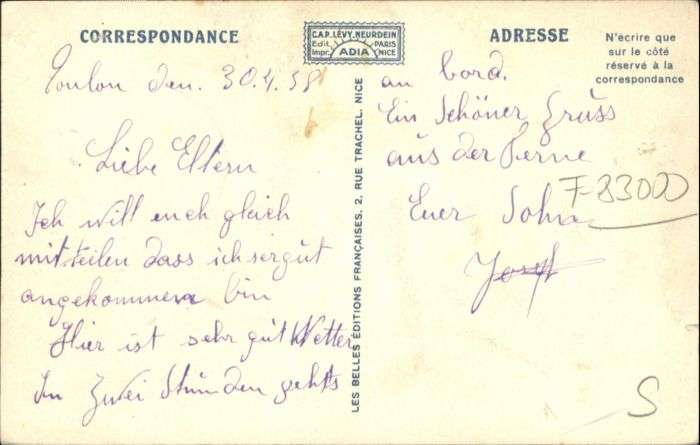 CORRESPONDANCE
CAP. LÉVY. NEURDEIN
Edit. PARIS
Impr. ADIA NICE
ADRESSE
N'écrire que
sur le côté
réservé à la
correspondance
Toulon den. 30.4.38
Liebe Eltern
Ich will euch gleich
mitteilen dass ich ser gut
angekommen bin
Hier ist sehr gut Wetter
In zwei Stunden gehts
LES BELLES ÉDITIONS FRANÇAISES. 2, RUE TRACHEL. NICE
an bord.
Ein Schöner Gruss
aus der Ferne
Euer Sohn
Josef
F-83000
S